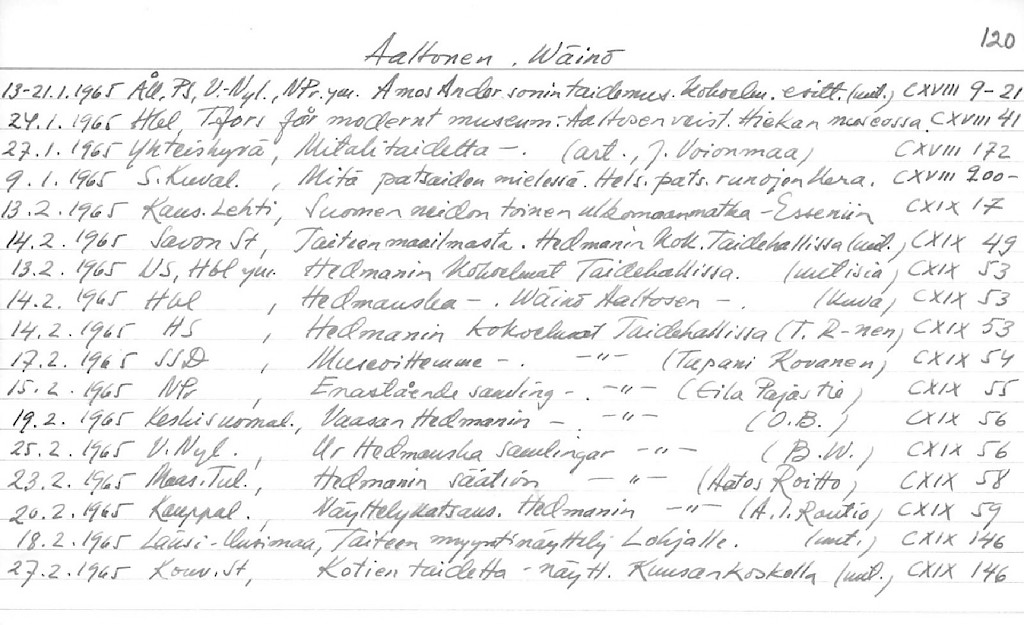 120
Aaltonen, Wäinö
13-21.1.1965 Ål, PS, V.-Nyl., NPr. ym. Amos Andersonin taidemus. kokoelm. esitt. (uut.) CXVIII 9-21
24.1.1965 Hbl, T:fors får modernt museum: Aaltosen veist. Hiekan museossa CXVIII 41
27.1.1965 Yhteishyvä, Mitalitaidetta -. (art., J. Voionmaa) CXVIII 172
9.1.1965 S. Kuval., Mitä patsaiden mielessä. Hels. pats. runojen kera. CXVIII 200-
13.2.1965 Kaus. Lehti, Suomen neidon toinen ulkomaanmatka - Esseniin CXIX 17
14.2.1965 Savon St, Taiteen maailmasta. Hedmanin kok. Taidehallissa (uut.) CXIX 49
13.2.1965 US, Hbl ym. Hedmanin kokoelmat Taidehallissa. (uutisia) CXIX 53
14.2.1965 Hbl, Hedmanska -. Wäinö Aaltosen -. (kuva) CXIX 53
14.2.1965 HS, Hedmanin kokoelmat Taidehallissa (T. R-nen) CXIX 53
17.2.1965 SSD, Museoittemme -. -"- (Tapani Kovanen) CXIX 54
15.2.1965 NPr, Enastående samling -. -"- (Eila Pajastie) CXIX 55
19.2.1965 Keskisuomal., Vaasan Hedmanin -. -"- (O.B.) CXIX 56
25.2.1965 V. Nyl., Ur Hedmanska samlingar -"- (B.W.) CXIX 56
23.2.1965 Maas. Tul., Hedmanin säätiön -"- (Aatos Roitto) CXIX 58
20.2.1965 Kauppal., Näyttelykatsaus. Hedmanin -"- (A.I. Routio) CXIX 59
18.2.1965 Länsi-Uusimaa, Taiteen myyntinäyttely Lohjalle. (uut.) CXIX 146
27.2.1965 Kouv. St, Kotien taidetta - näytt. Kuusankoskella (uut.) CXIX 146